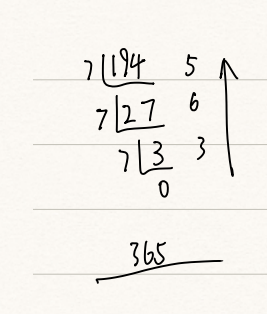 7 194 5
7 27 6
7 3 3
0
365